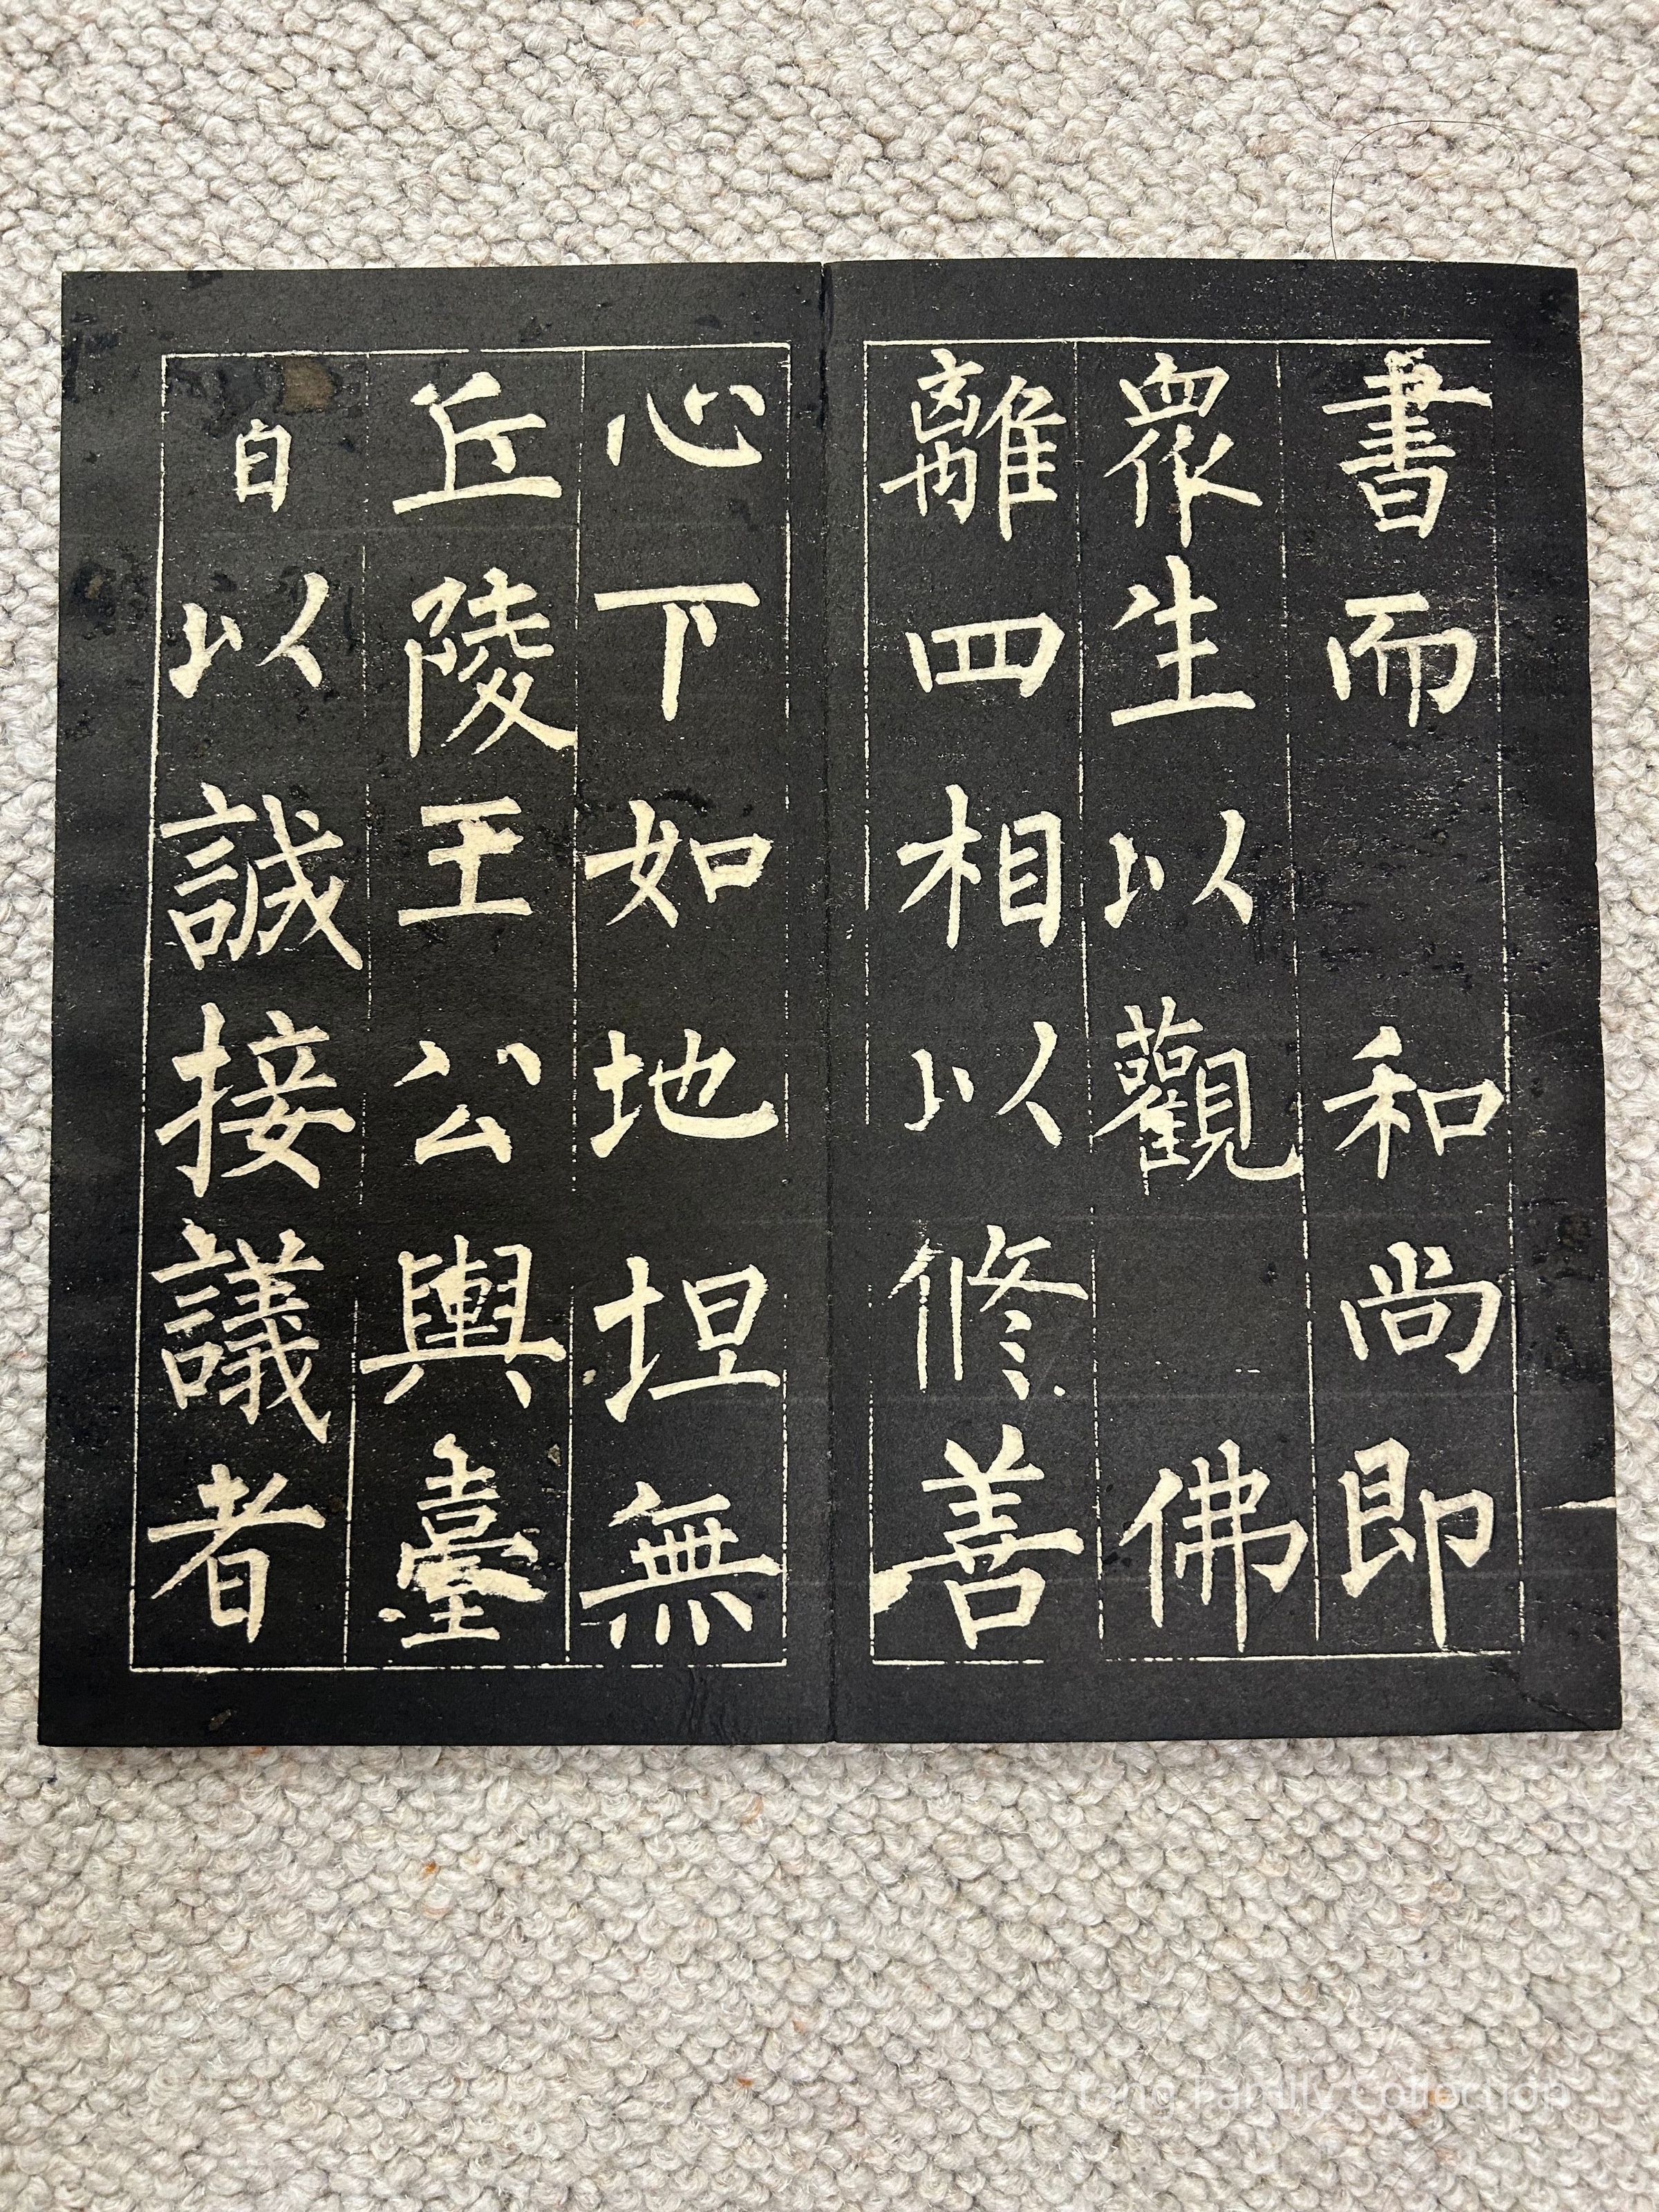 書而 和尚即
衆生以觀 佛
離四相以修善
心下如地坦無
丘陵王公輿臺
皆以誠接議者
Tang Family Collection